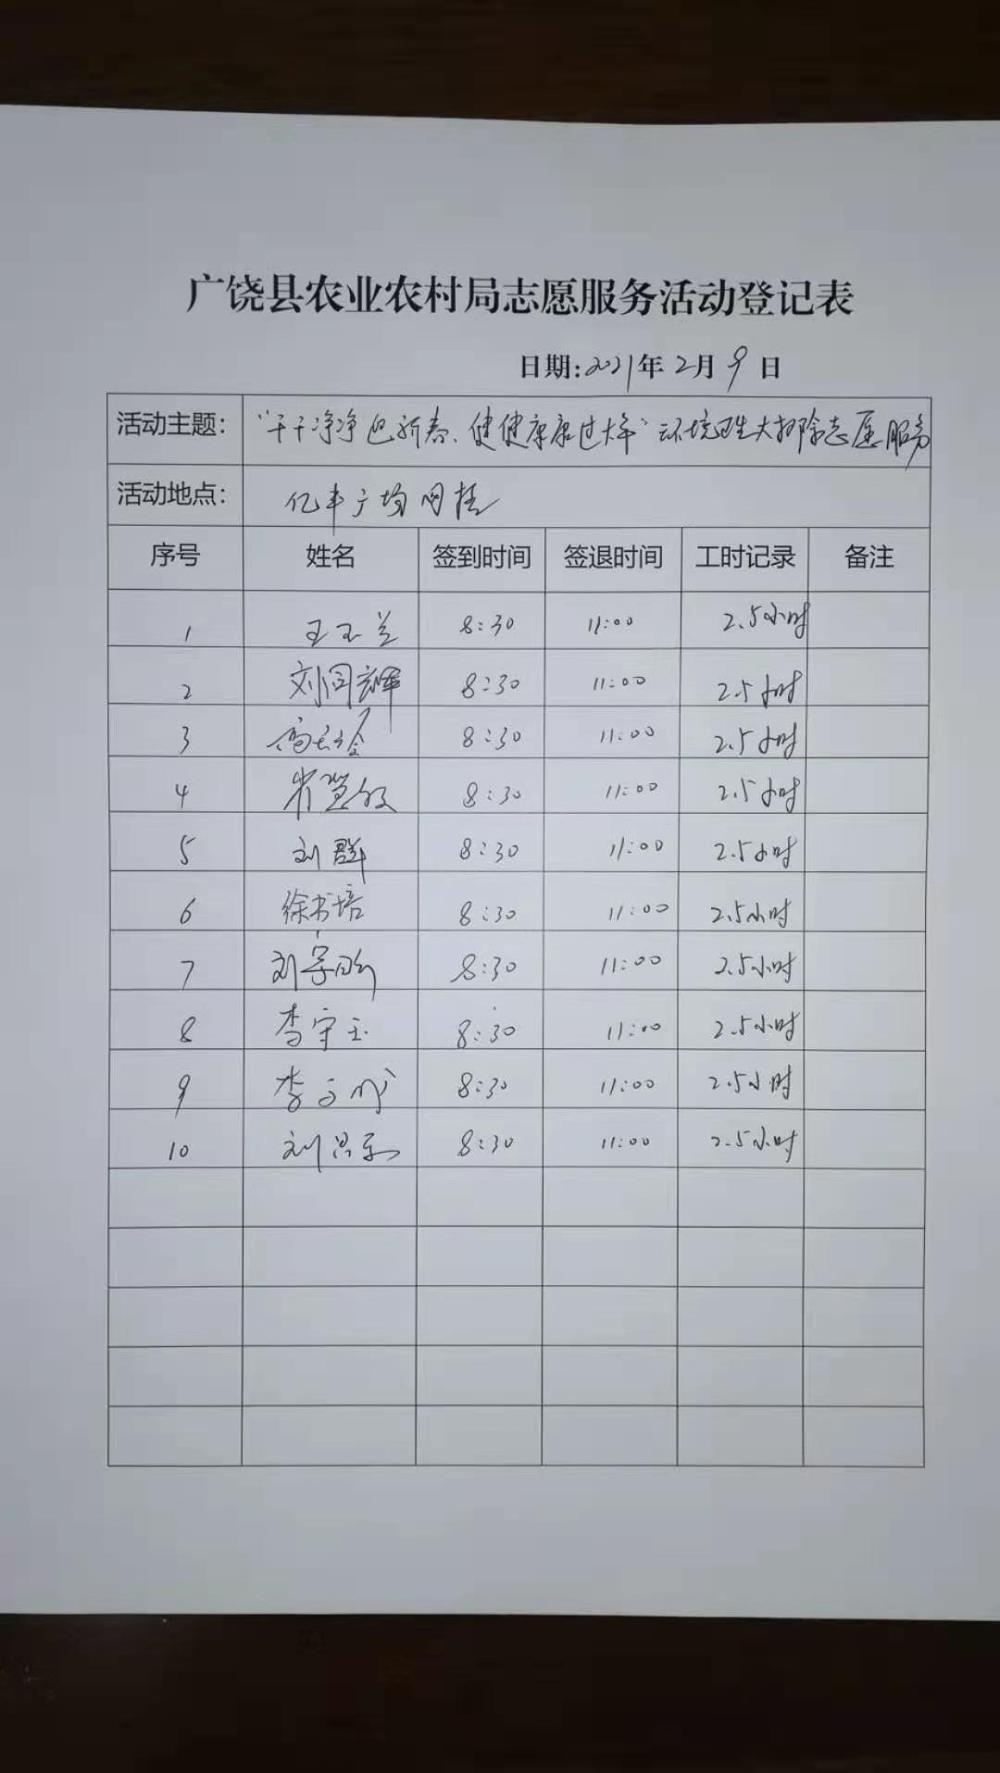 广饶县农业农村局志愿服务活动登记表
日期:2021年2月9日
活动主题: "干干净净迎新春、健健康康过大年"环境卫生大扫除志愿服务
活动地点: 亿丰广场
序号 姓名 签到时间 签退时间 工时记录 备注
1 王玉兰 8:30 11:00 2.5小时
2 刘同辉 8:30 11:00 2.5小时
3 8:30 11:00 2.5小时
4 8:30 11:00 2.5小时
5 刘群 8:30 11:00 2.5小时
6 徐书培 8:30 11:00 2.5小时
7 刘 8:30 11:00 2.5小时
8 李守玉 8:30 11:00 2.5小时
9 李 8:30 11:00 2.5小时
10 刘 8:30 11:00 2.5小时